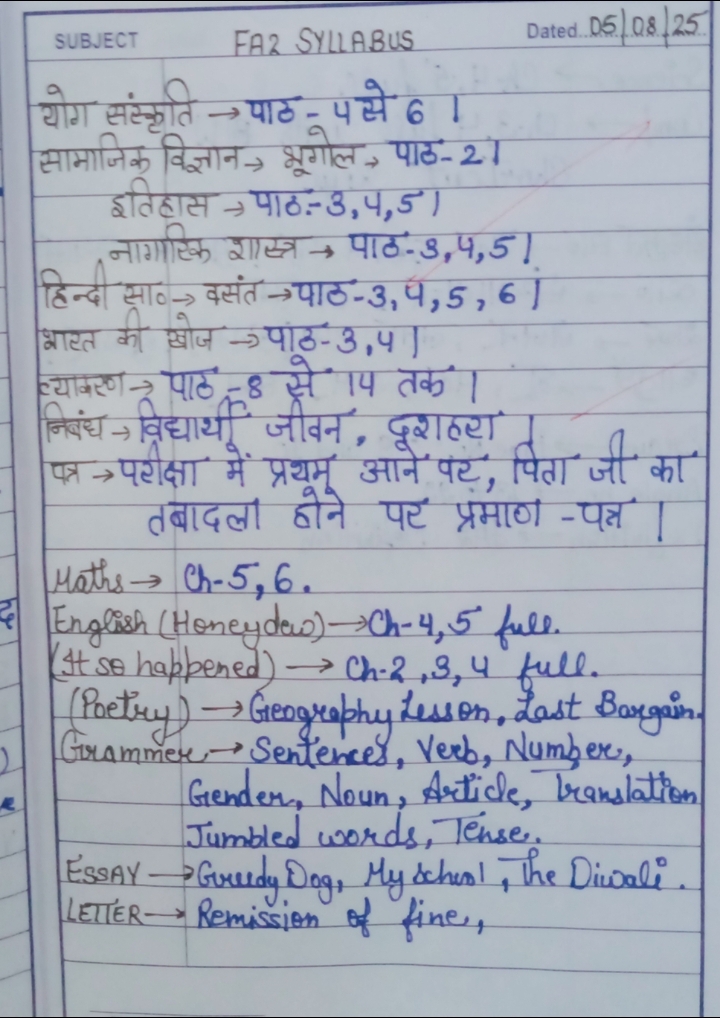 SUBJECT FA2 SYLLABUS Dated 05/08/25
योग संस्कृति → पाठ - 4 से 6 ।
सामाजिक विज्ञान → भूगोल → पाठ - 2।
इतिहास → पाठ - 3, 4, 5।
नागरिक शास्त्र → पाठ - 3, 4, 5।
हिन्दी सा० → वसंत → पाठ - 3, 4, 5, 6।
भारत की खोज → पाठ - 3, 4।
व्याकरण → पाठ - 8 से 14 तक।
निबंध → विद्यार्थी जीवन, दशहरा ।
पत्र → परीक्षा में प्रथम आने पर, पिता जी का
तबादला होने पर प्रमाण - पत्र ।
Maths → Ch-5, 6.
English (Honeydew) → Ch-4, 5 full.
(It so happened) → Ch-2, 3, 4 full.
(Poetry) → Geography Lesson, Last Bargain.
Grammer → Sentences, Verb, Number,
Gender, Noun, Article, Translation
Jumbled words, Tense.
ESSAY → Greedy Dog, My School, The Diwali.
LETTER → Remission of fine,